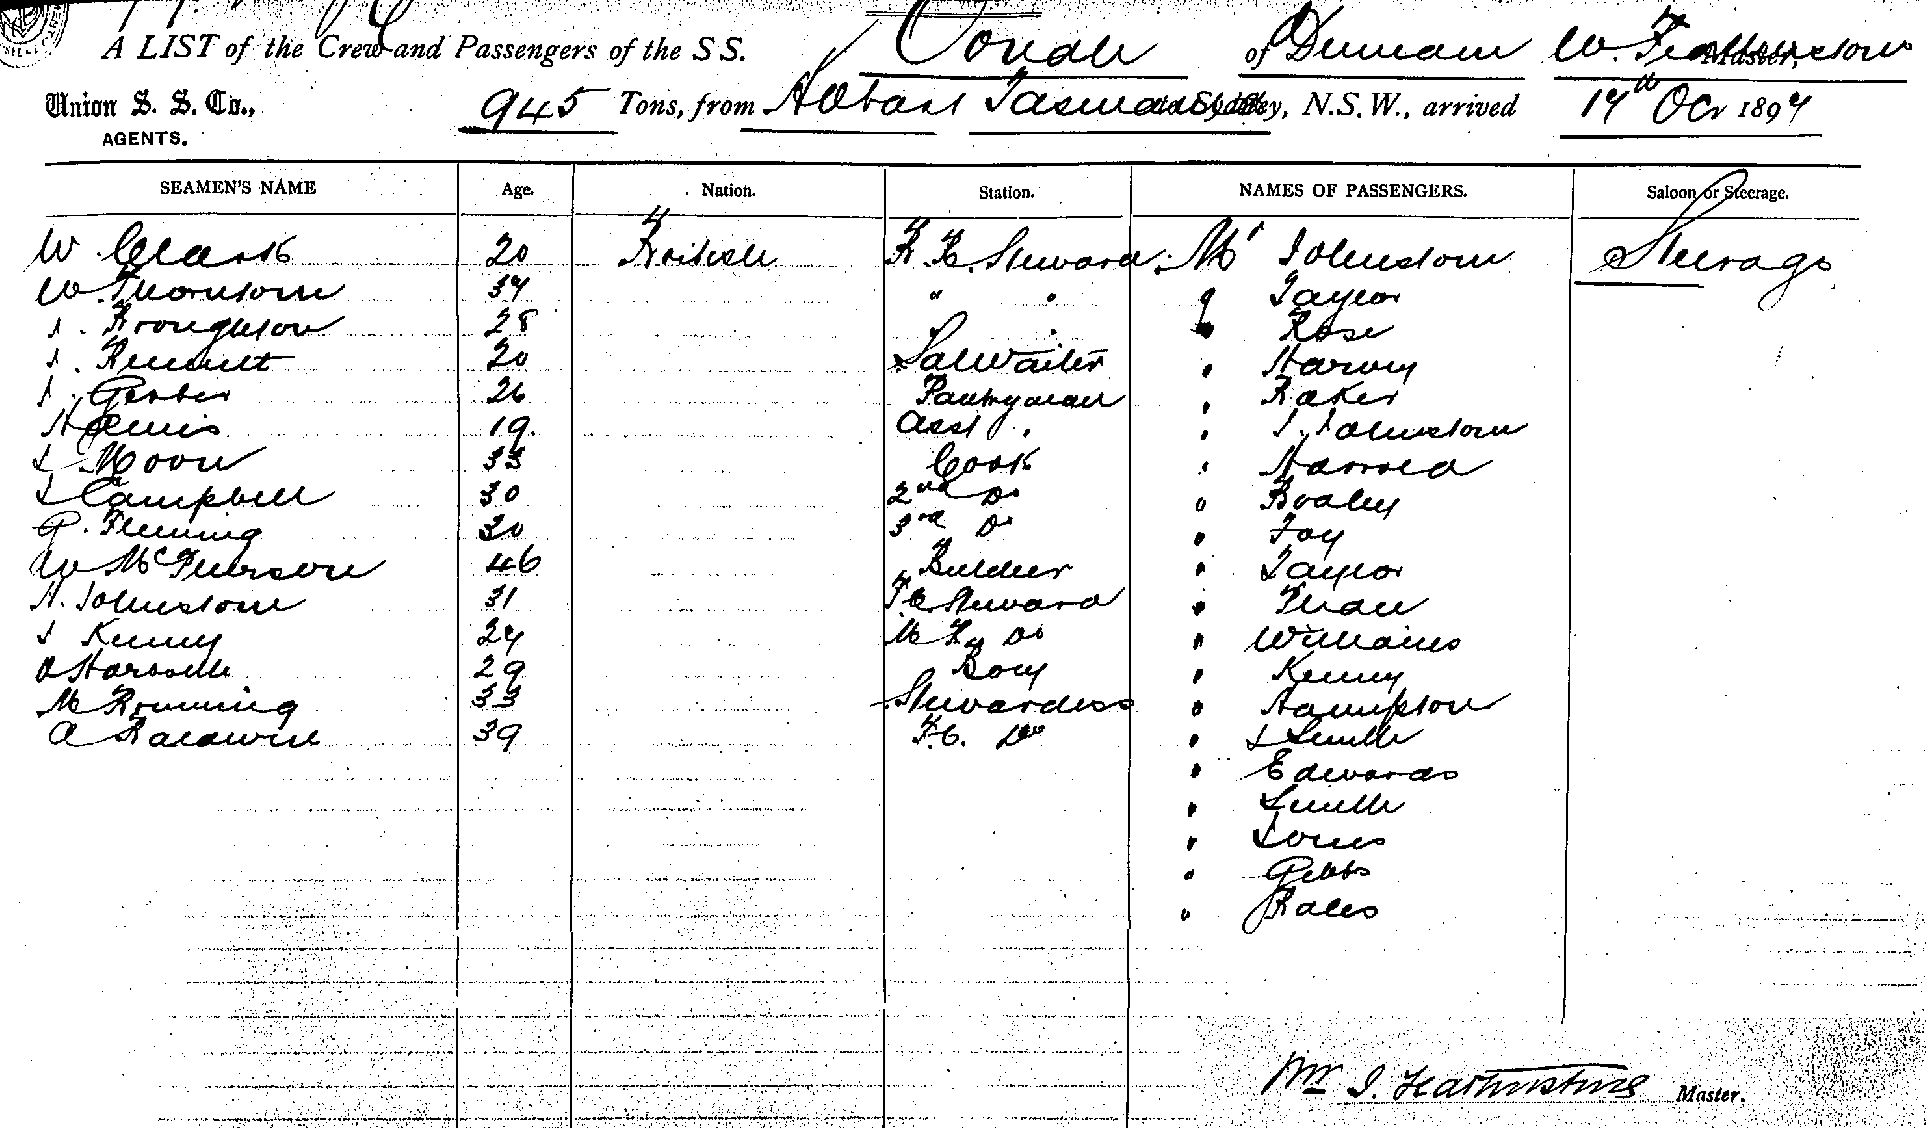 A LIST of the Crew and Passengers of the S S. Oonah of Dunedin W. Featherstone Master,
Union S. S. Co.,
AGENTS.
945 Tons, from Hobart Tasmania to Sydney, N.S.W., arrived 14th Oct 1897
SEAMEN'S NAME Age. Nation. Station. NAMES OF PASSENGERS. Saloon or Steerage.
W. Clark 20 British F. C. Steward Mr Johnstone Steerage
W. Thornton 34 " " " Taylor
J. Broughton 28 " " " Rose
J. Bennett 20 Sal Waiter " Harvey
J. Gerber 26 Pantryman " Baker
H 19. Asst " " J. Johnstone
J Moore 33 Cook " Harrold
J Campbell 30 2nd Do "
G. Fleming 30 3rd Do " Foy
W McPherson 46 Butcher " Taylor
A. Johnstone 31 F.C. Steward "
J Kenny 24 Do " Williams
29 Boy " Kenny
M Browning 33 Stewardess " Hampton
A Baldwin 39 F.C. Do " J Smith
" Edwards
" Smith
" Jones
" Gibbs
" Bales
Wm J. Featherstone Master.